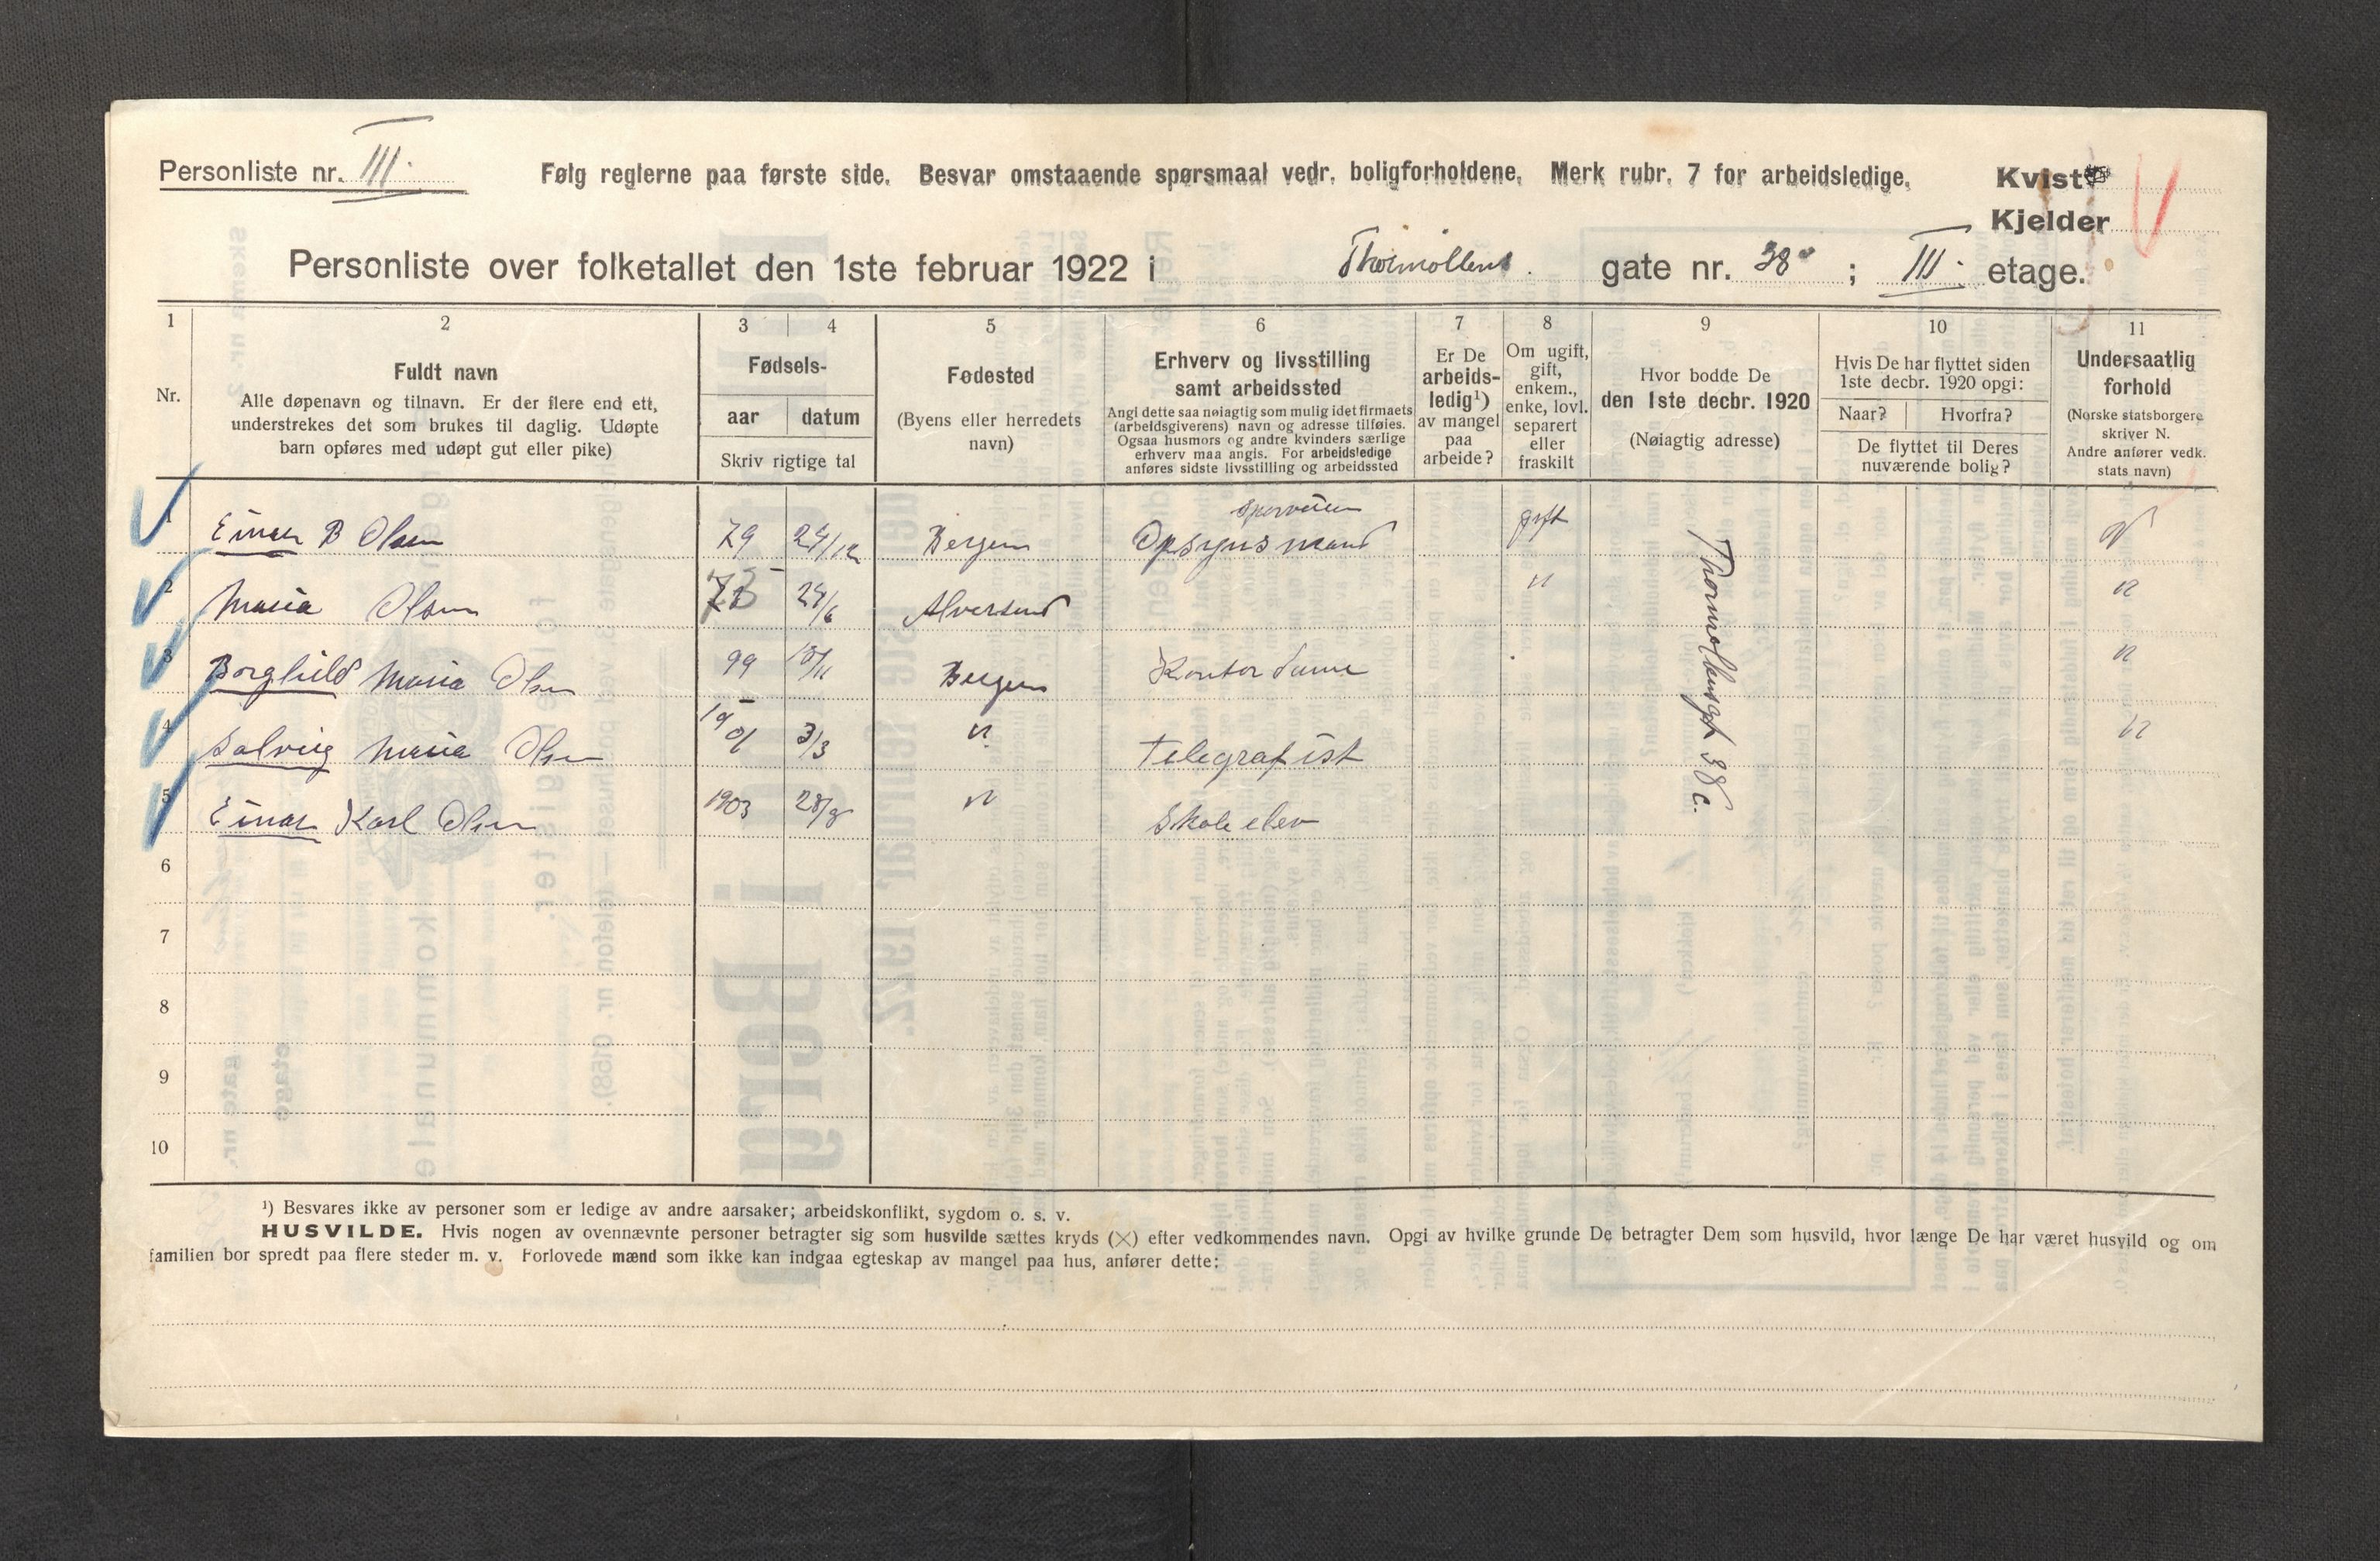 Personliste nr. III. Følg reglerne paa første side. Besvar omstaaende spørsmaal vedr. boligforholdene. Merk rubr. 7 for arbeidsledige. Kvist
Kjelder
Personliste over folketallet den 1ste februar 1922 i Thormøllens gate nr. 38c ; III. etage.
1 2 3 4 5 6 7 8 9 10 11
Nr.
Fuldt navn
Alle døpenavn og tilnavn. Er der flere end ett,
understrekes det som brukes til daglig. Udøpte
barn opføres med udøpt gut eller pike)
Fødsels-
aar datum
Skriv rigtige tal
Fødested
(Byens eller herredets
navn)
Erhverv og livsstilling
samt arbeidssted
Angi dette saa nøiagtig som mulig idet firmaets
(arbeidsgiverens) navn og adresse tilføies.
Ogsaa husmors og andre kvinders særlige
erhverv maa angis. For arbeidsledige
anføres sidste livsstilling og arbeidssted
Er De
arbeids-
ledig¹)
av mangel
paa
arbeide?
Om ugift,
gift,
enkem.,
enke, lovl.
separert
eller
fraskilt
Hvor bodde De
den 1ste decbr. 1920
(Nøiagtig adresse)
Hvis De har flyttet siden
1ste decbr. 1920 opgi:
Naar? Hvorfra?
De flyttet til Deres
nuværende bolig?
Undersaatlig
forhold
(Norske statsborgere
skriver N.
Andre anfører vedk.
stats navn)
sporveien
1 Einar B Olsen 79 24/12 Bergen Opsynsmand gift N
2 Maria Olsen 24/6 Alversund " "
3 Borghild Maria Olsen 99 Bergen Kontordame "
4 Solveig Maria Olsen 1901 3/3 " Telegrafist "
5 Einar Karl Olsen 1903 28/8 " Skoleelev
Thormøllensgt 38c.
6
7
8
9
10
¹) Besvares ikke av personer som er ledige av andre aarsaker; arbeidskonflikt, sygdom o. s. v.
HUSVILDE. Hvis nogen av ovennævnte personer betragter sig som husvilde sættes kryds (×) efter vedkommendes navn. Opgi av hvilke grunde De betragter Dem som husvild, hvor længe De har været husvild og om
familien bor spredt paa flere steder m. v. Forlovede mænd som ikke kan indgaa egteskap av mangel paa hus, anfører dette: